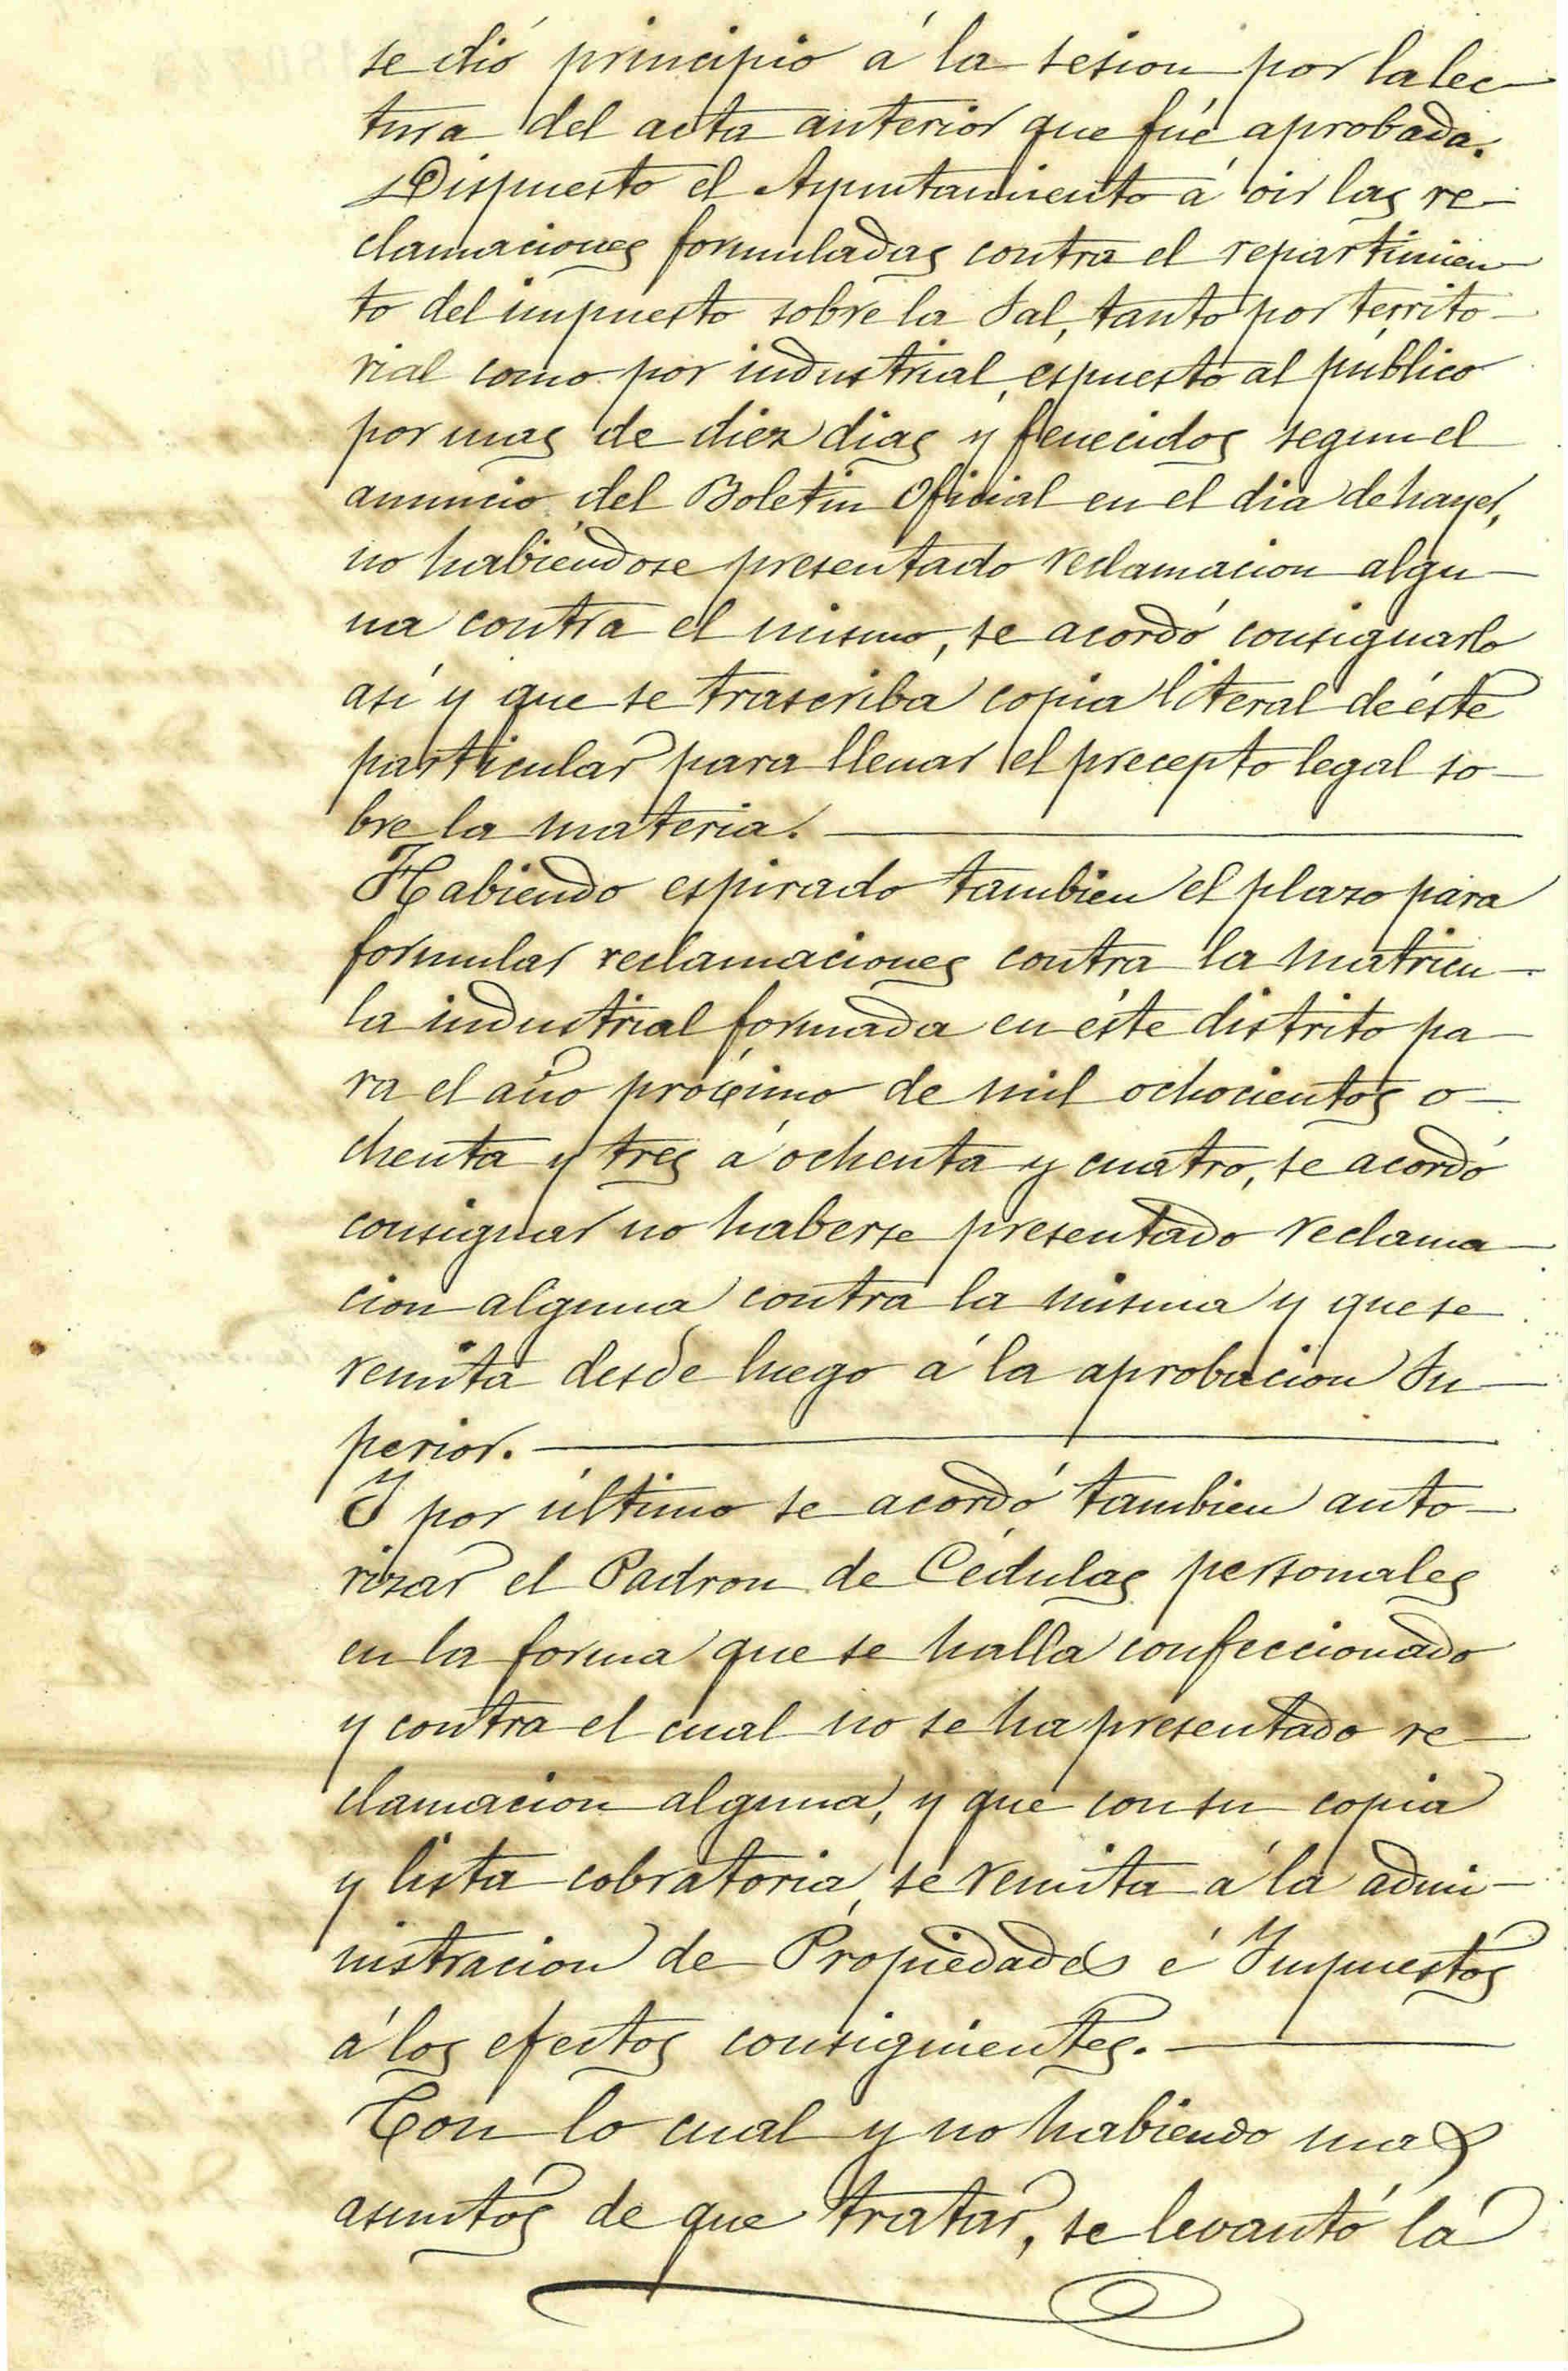 se dió principio á la sesion por la lec-
tura del acta anterior que fué aprobada.
Dispuesto el Ayuntamiento á oir las re-
clamaciones formuladas contra el repartimien-
to del impuesto sobre la Sal, tanto por territo-
rial como por industrial, espuesto al público
por mas de diez dias y fenecidos segun el
anuncio del Boletin Oficial en el dia de hayer,
no habiendose presentado reclamacion algu-
na contra el mismo, se acordó consignarlo
así y que se trascriba copia literal de éste
particular para llenar el precepto legal so-
bre la materia.
Habiendo espirado tambien el plazo para
formular reclamaciones contra la matricu-
la industrial formada en éste distrito pa-
ra el año procsimo de mil ochocientos o-
chenta y tres á ochenta y cuatro, se acordó
consignar no haberse presentado reclama-
cion alguna contra la misma y que se
remita desde luego á la aprobacion Su-
perior.
Y por último se acordó tambien auto-
rizar el Padron de Cédulas personales
en la forma que se halla confeccionado
y contra el cual no se ha presentado re-
clamacion alguna, y que con su copia
y lista cobratoria, se remita á la admi-
nistracion de Propiedades é Impuestos
á los efectos consiguientes.
Con lo cual y no habiendo mas
asuntos de que tratar, se levantó la